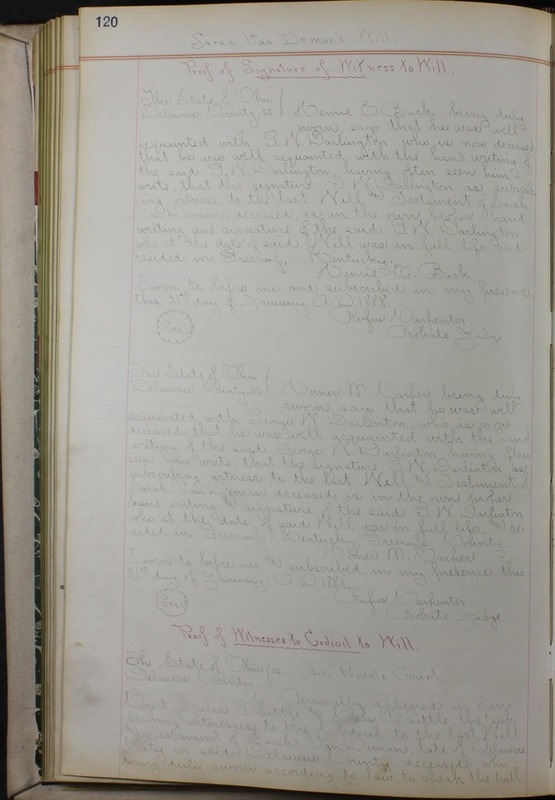 120
Sarah Van Deman's Will.
Proof of Signature of Witness to Will.
The State of Ohio
Delaware County, ss Henrie E. Buck being duly
sworn says that he was well
acquainted with G. W. Darlington who is now deceased
that he was well acquainted with the hand writing of
the said G. W. Darlington having often seen him
write, that the signature G. W. Darlington as subscrib
ing witness to the last Will and Testament of Sarah
Van Deman, deceased, is in the own proper hand
writing and signature of the said G. W. Darlington
who at the date of said Will was in full life and
resided in Kentucky.
Buck
Sworn to before me and subscribed in my presence
this 31st day of January A.D. 1888.
Rufus Carpenter
Seal Probate Judge
The State of Ohio
Delaware County, ss Homer M. Carper being duly
sworn says that he was well
acquainted with George W. Darlinton who is now
deceased that he was well acquainted with the hand
writing of the said George W. Darlinton having often
seen him write that the signature G. W. Darlinton as
subscribing witness to the last Will and Testament of
Sarah Van Deman, deceased is in the own proper
hand writing and signature of the said G. W. Darlinton
who at the date of said Will, was in full life, and re-
sided in Kentucky Greenup County.
Homer M. Carper
Sworn to before me and subscribed in my presence, this
31st day of January, A.D. 1888.
Rufus Carpenter
Seal Probate Judge
Proof of Witnesses to Codicil to Will.
The State of Ohio ss In Probate Court
Delaware County
Personally appeared in open
Court and Little, the sub
scribing witnesses to the Codicil to the last Will
and Testament of Sarah Van Deman, late of Delaware
City in said Delaware County, deceased, who
being duly sworn according to law, to speak the truth